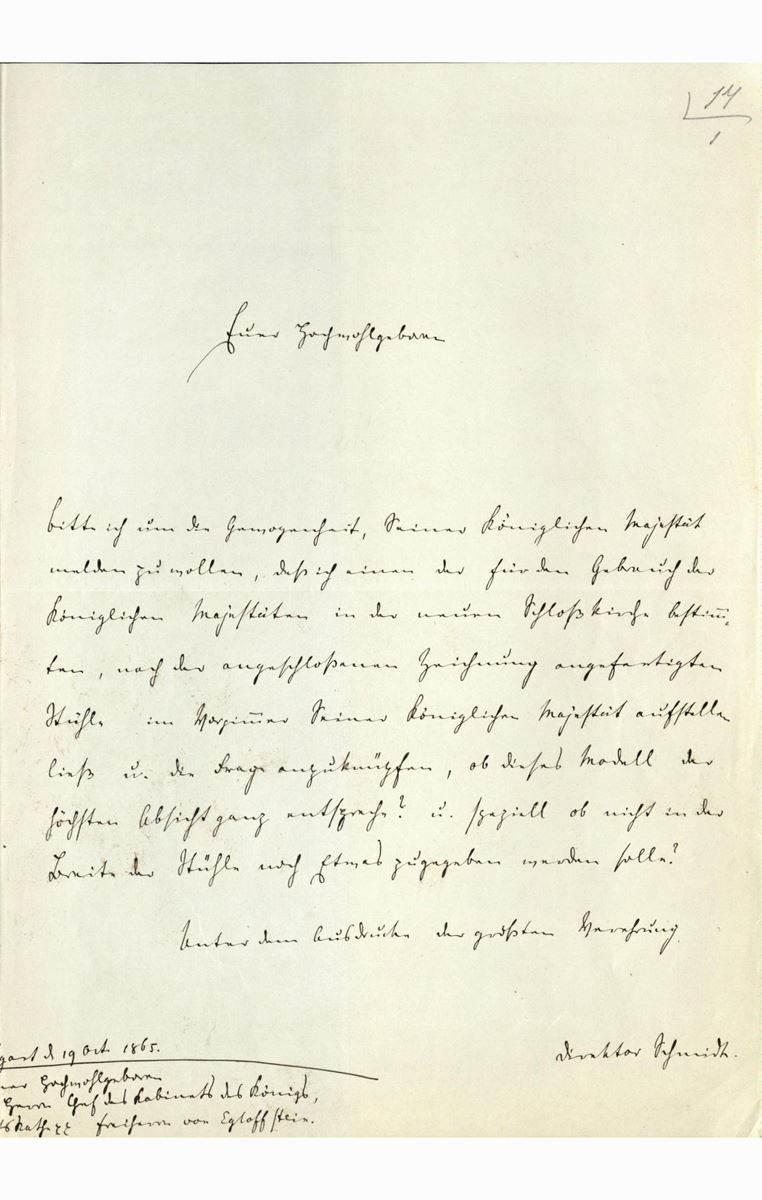 14
1
Euer Hochwohlgeboren
bitte ich um die Gewogenheit, Seiner Königlichen Majestät
melden zu wollen, daß ich einen der für den Gebrauch der
Königlichen Majestäten in der neuen Schloßkirche bestim̅-
ten, nach der angeschloßenen Zeichnung angefertigten
Stühle im Vorzim̅er Seiner Königlichen Majestät aufstellen
ließ u. die Frage anzuknüpfen, ob dieses Modell der
höchsten Absicht ganz entspreche? u. speziell ob nicht in der
Breite der Stühle noch Etwas zugegeben werden solle?
Unter dem Ausdrucke der größten Verehrung
Direktor Schmidt.
gart d 19 Oct. 1865.
ner Hochwohlgeboren
Herrn Chef des Kabinets des Königs,
tsRath Freiherrn von Egloffstein.